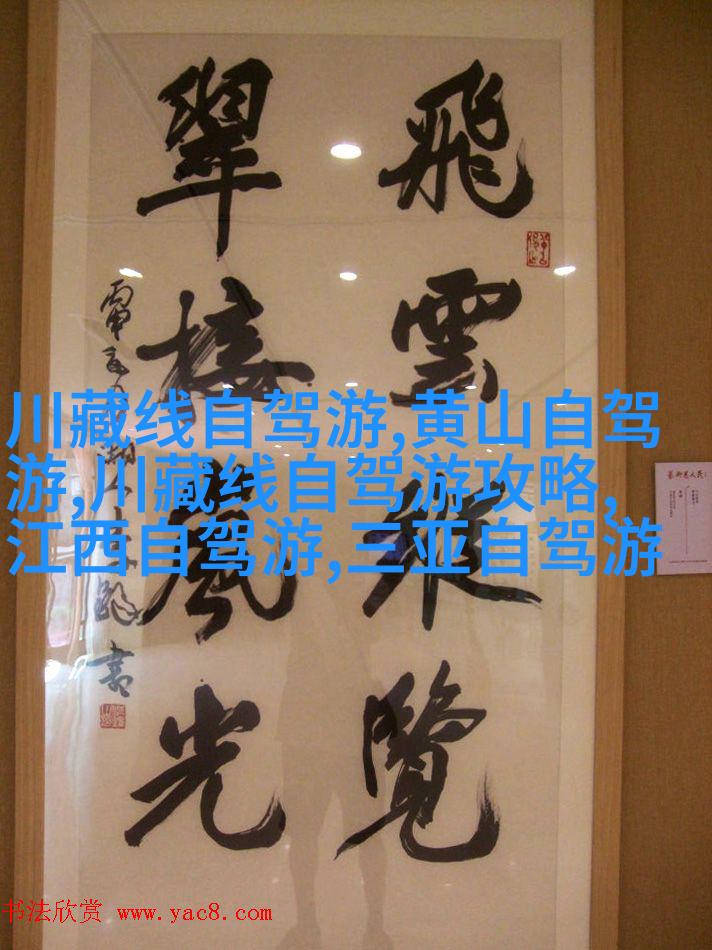 飛雲縱覽
翠接嵐光
川藏线自驾游,黄山自驾
游,川藏线自驾游攻略,
江西自驾游,三亚自驾游
书法欣赏 www.yac8.com